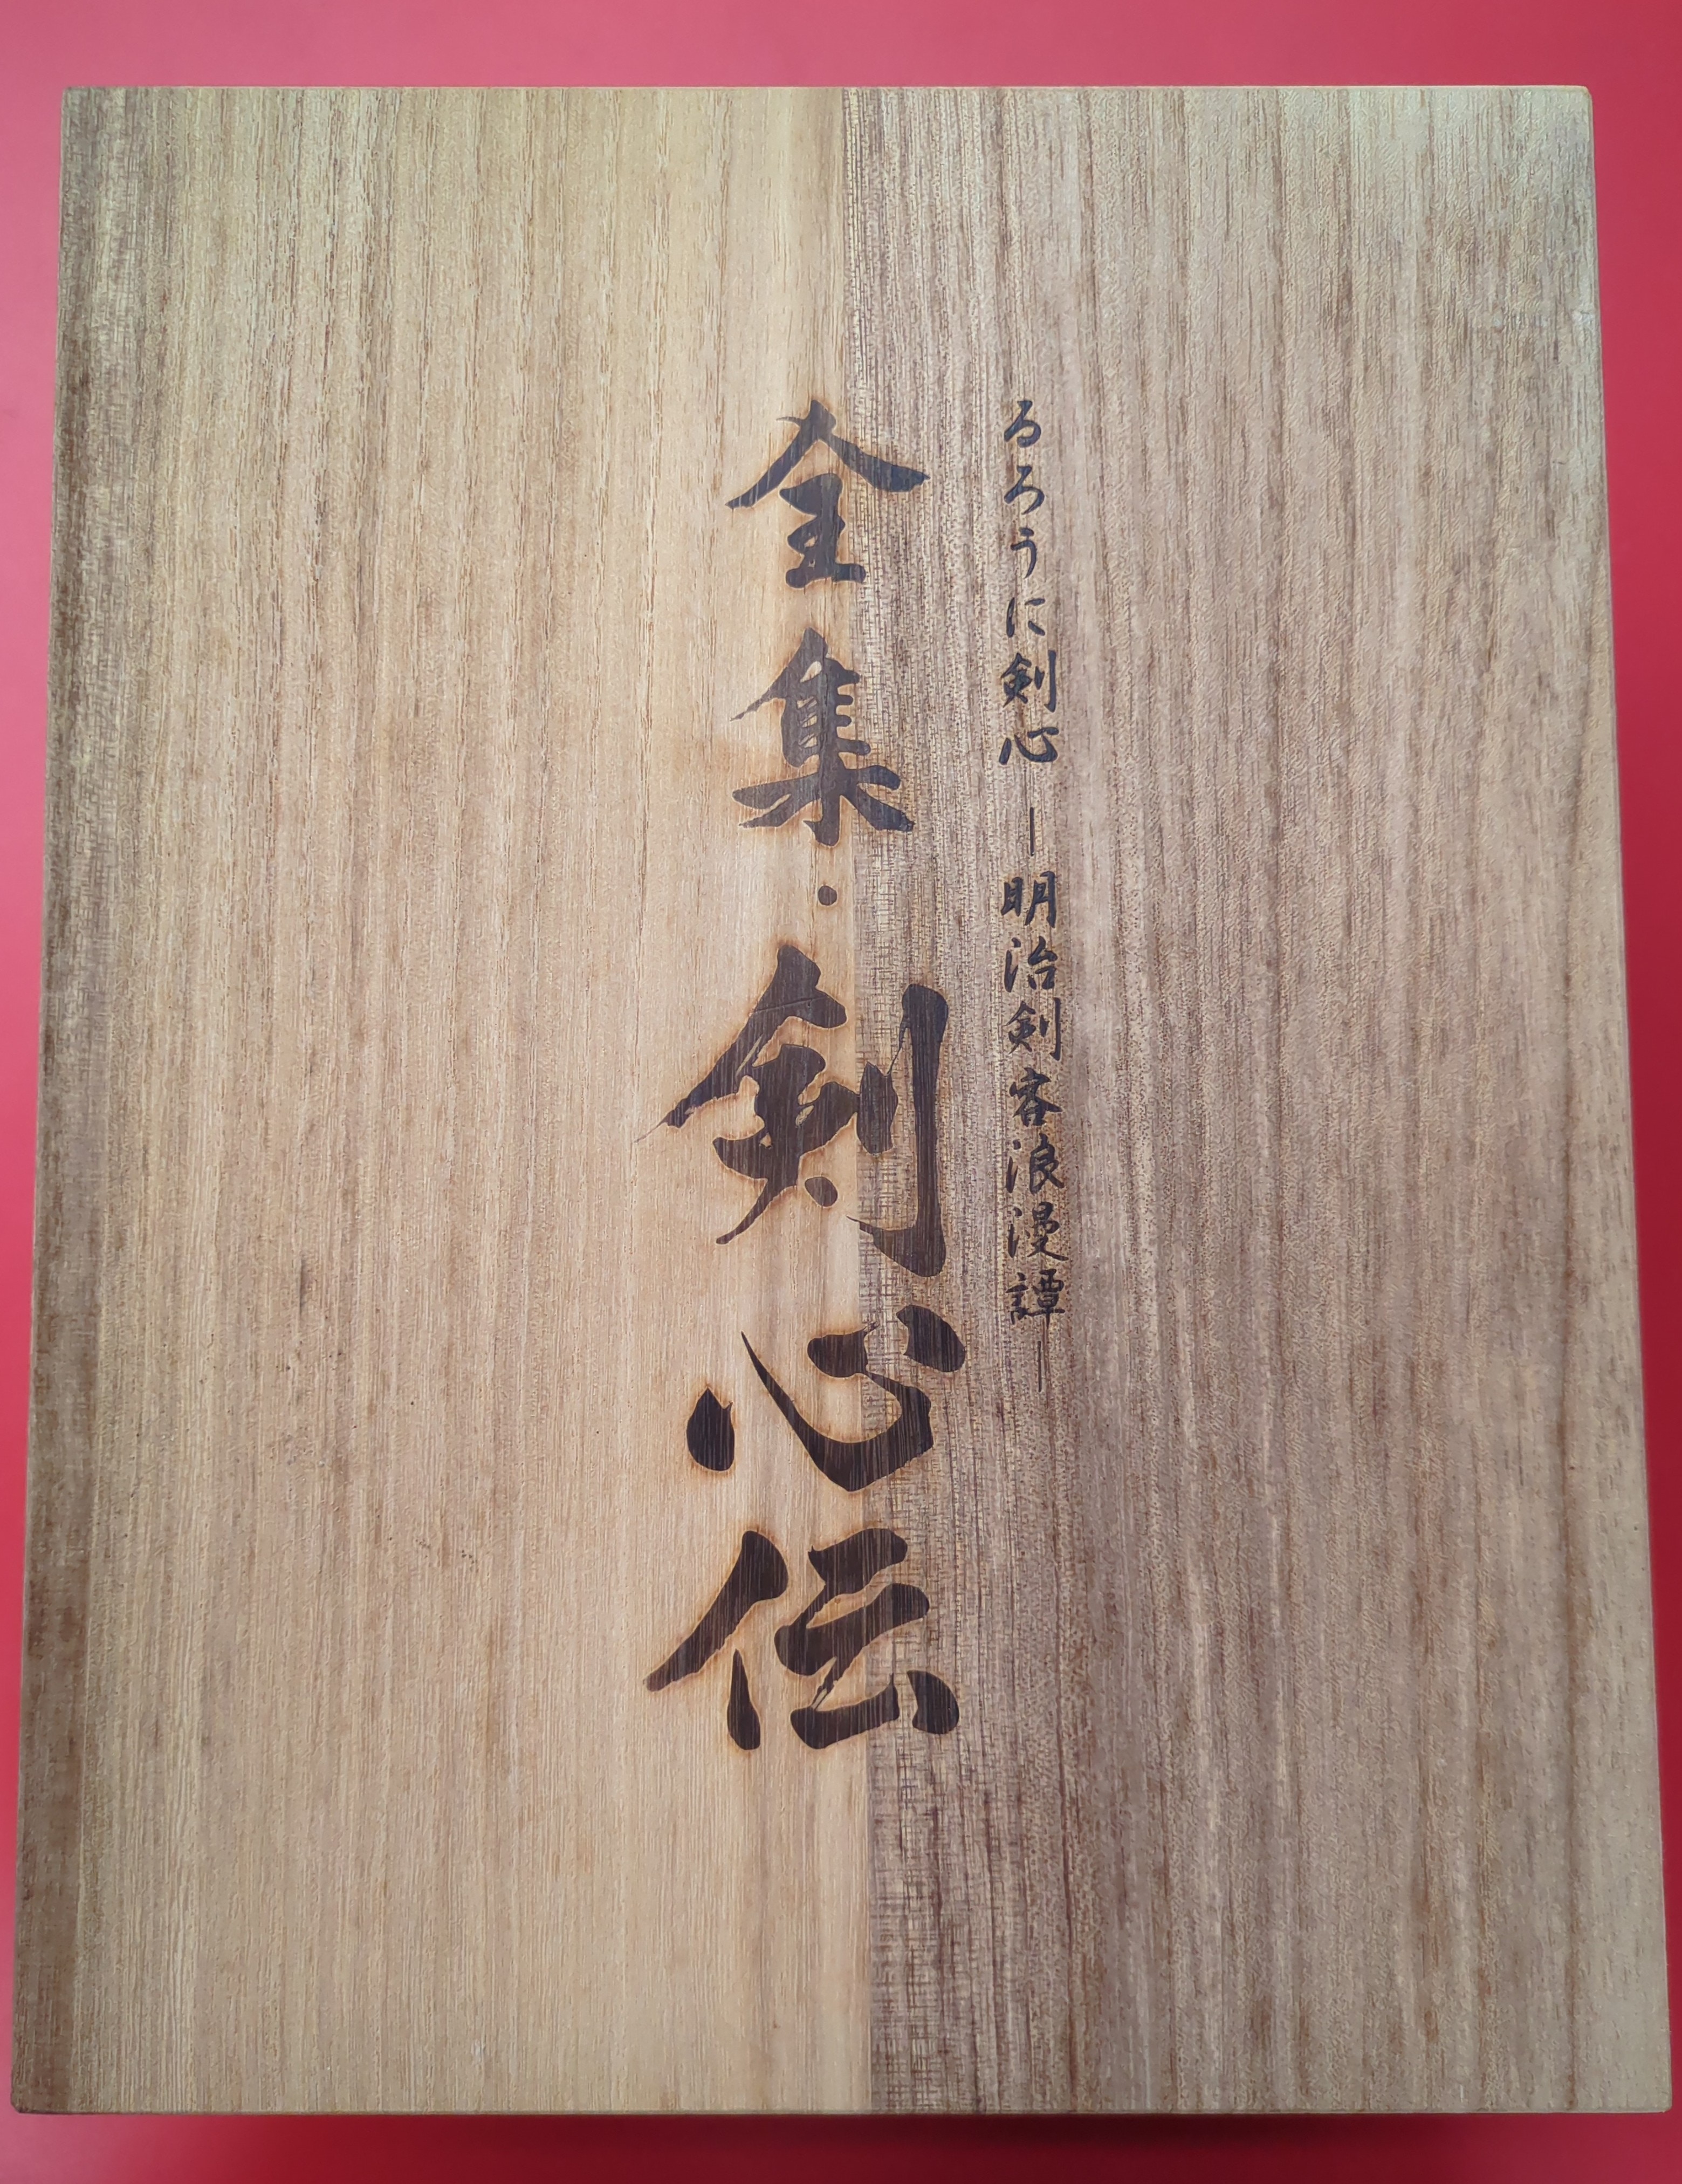 るろうに剣心－明治剣客浪漫譚－
全集・剣心伝